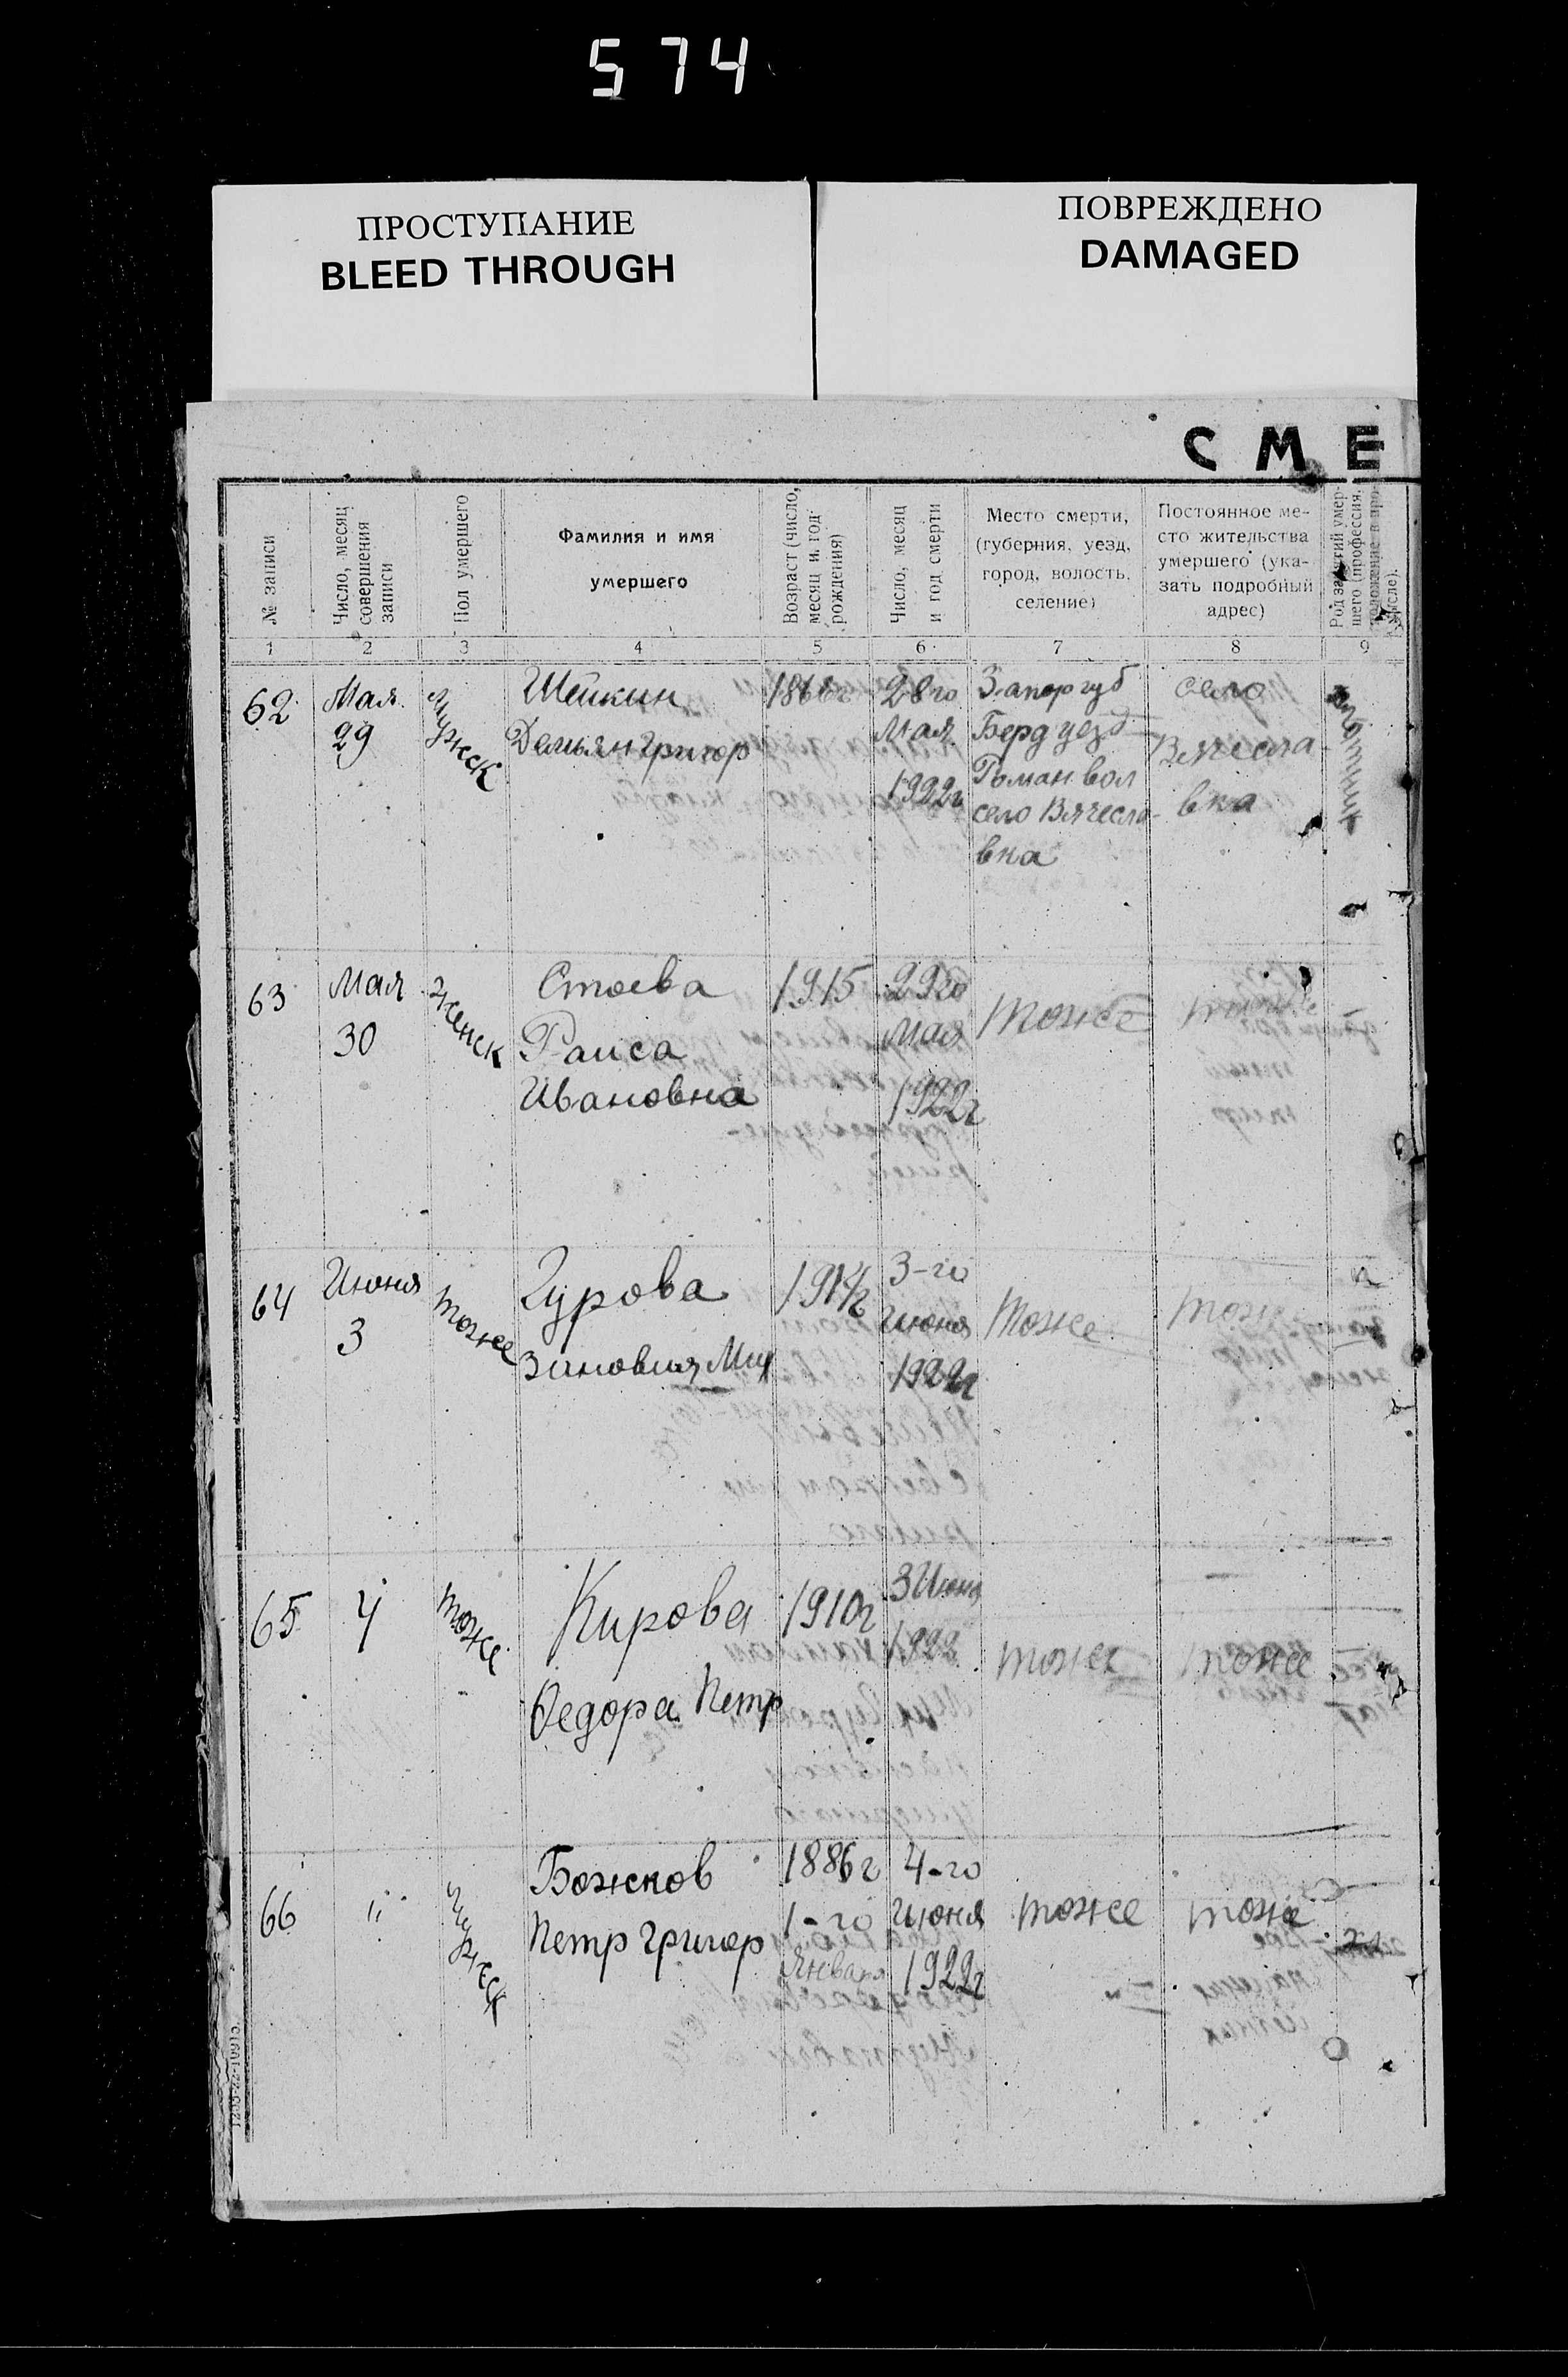 574
ПРОСТУПАНИЕ
BLEED THROUGH
ПОВРЕЖДЕНО
DAMAGED
С М Е
№ записи
Число, месяц
совершения
записи
Пол умершего
Фамилия и имя
умершего
Возраст (число,
месяц и год
рождения)
Число, месяц
и год смерти
Место смерти,
(губерния, уезд,
город, волость,
селение)
Постоянное ме-
сто жительства
умершего (ука-
зать подробный
адрес)
Род занятий умер-
шего (профессия,
положение в про-
мысле).
1 2 3 4 5 6 7 8 9
62
Мая
29
Мужск
Шейкин
Демьян Григор
28го
Мая
1922г
Запор губ
Берд уезд
Роман вол
село Вячесла-
вка
село
Вячесла
вка
63
Мая
30
женск
Стоева
Раиса
Ивановна
1915
29го
мая
1922г
тоже
тоже
64
Июня
3
тоже
Гурова
Зиновия Мих
1914г
3-го
июня
1922г
тоже
тоже
65
4
тоже
Кирова
Федора Петр
1910г
3 Июня
1922
тоже
тоже
66
"
Мужск
Божков
Петр Григор
1886г
1-го
Января
4-го
июня
1922г
тоже
тоже